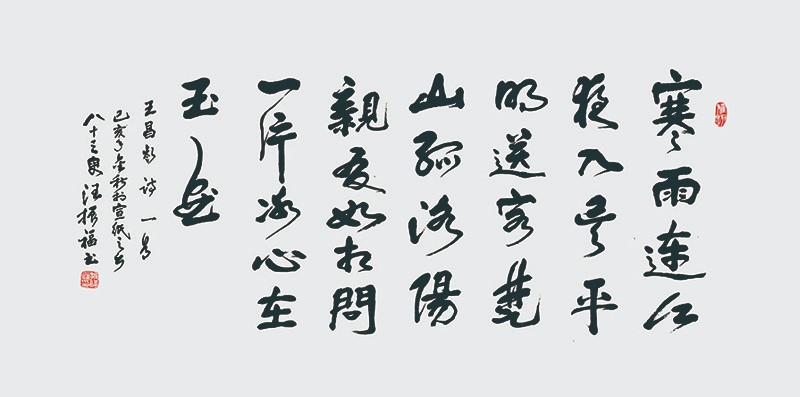 寒雨連江
夜入吳平
明送客楚
山孤洛陽
親友如相問
一片冰心在
玉壺
王昌齡詩一首
己亥年金秋於宣紙之乡
八十三叟汪振福书